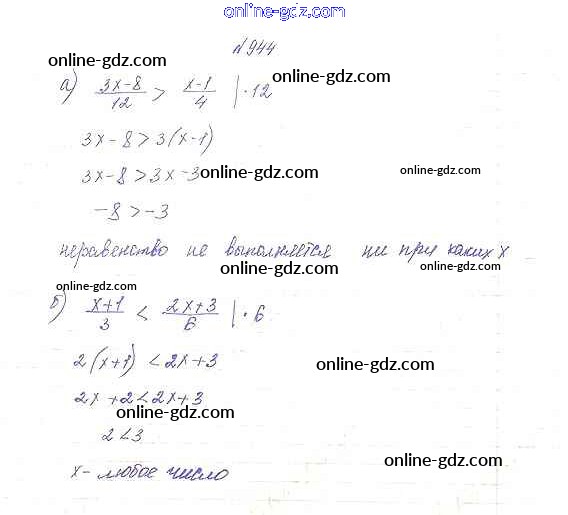 online-gdz.com
№944
online-gdz.com
online-gdz.com
а) (3x-8)/12 > (x-1)/4 | · 12
3x-8 > 3(x-1)
3x-8 > 3x-3
online-gdz.com
online-gdz.com
-8 > -3
неравенство не выполняется ни при каких x
online-gdz.com
online-gdz.com
online-gdz.com
б) (x+1)/3 < (2x+3)/6 | · 6
2(x+1) < 2x+3
online-gdz.com
2x+2 < 2x+3
online-gdz.com
2 < 3
online-gdz.com
x - любое число